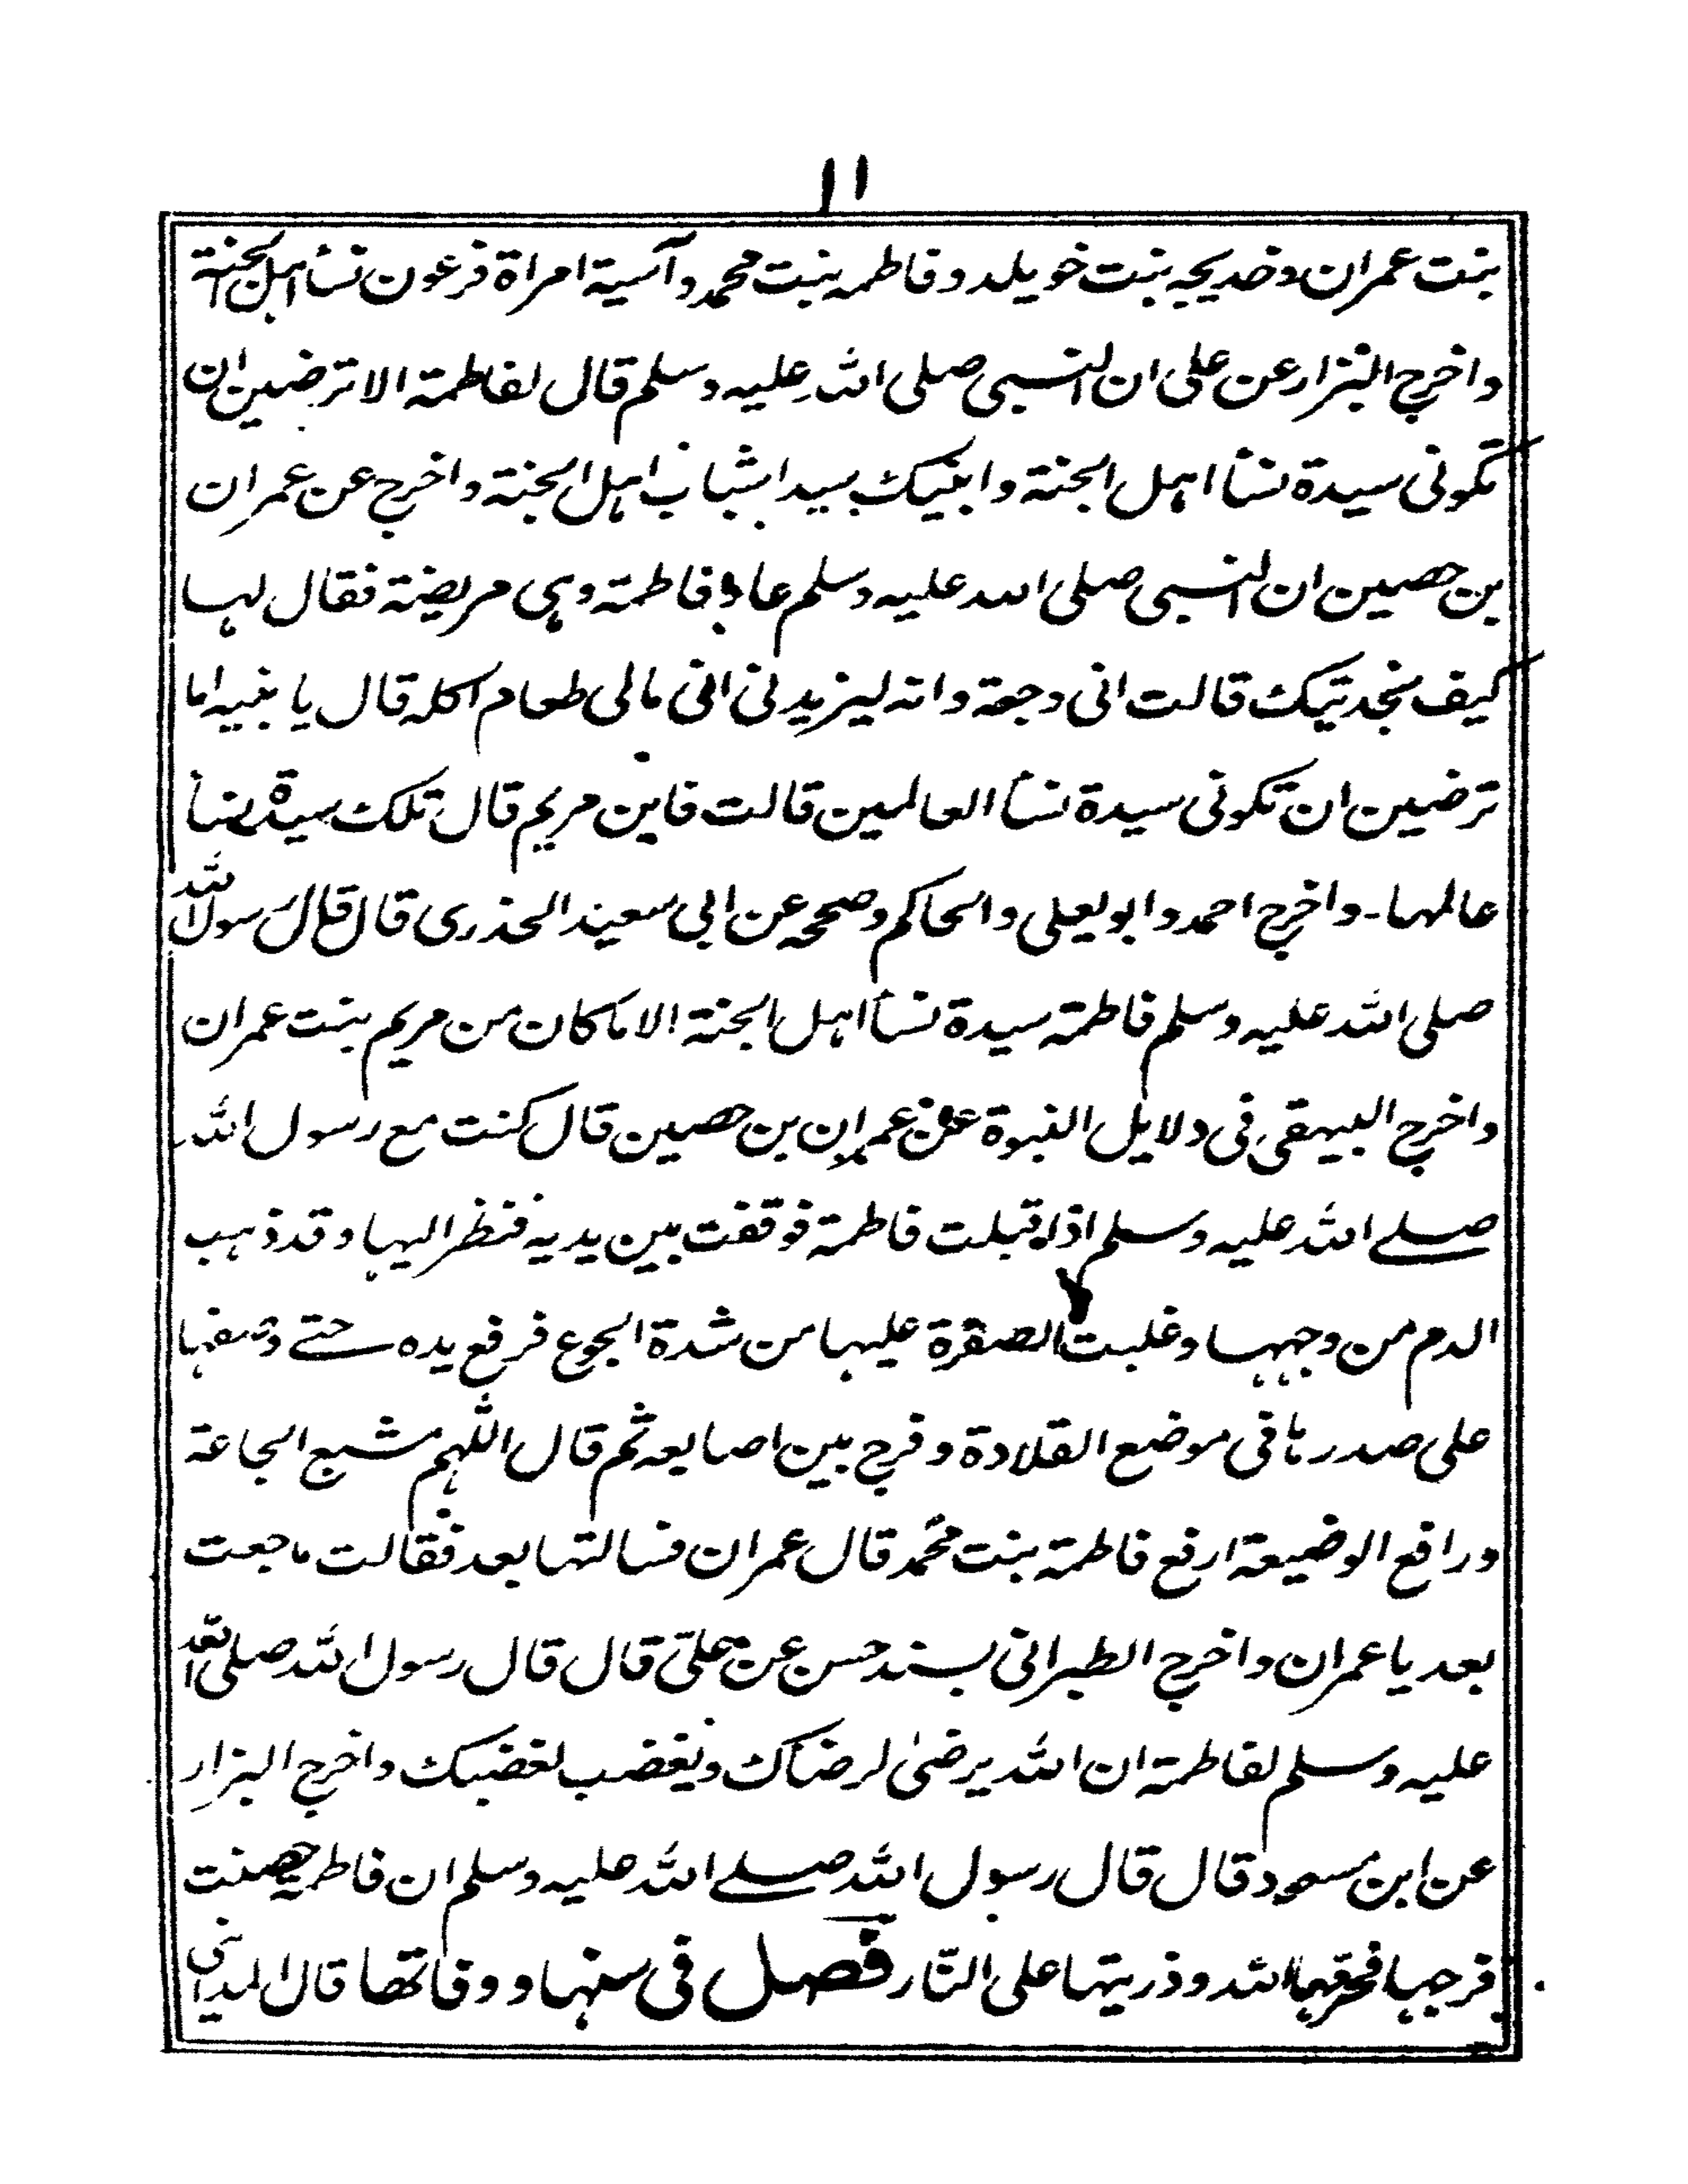 ١١
بنت عمران وخديجه بنت خويلد وفاطمه بنت محمد وآسية امراة فرعون نسأ اهل الجنة
واخرج البزار عن على ان النبى صلى الله عليه وسلم قال لفاطمة الا ترضين ان
تكونى سيدة نسأ اهل الجنة وابنيك سيدا شباب اهل الجنة واخرج عن عمران
بن حصين ان النبى صلى الله عليه وسلم عاد فاطمة وهى مريضة فقال لها
كيف تجدينك قالت انى وجعة وانه ليزيدنى انى مالى طعام اكله قال يا بنيه اما
ترضين ان تكونى سيدة نسأ العالمين قالت فاين مريم قال تلك سيدة نسأ
عالمها - واخرج احمد وابو يعلى والحاكم وصححه عن ابى سعيد الخدرى قال قال رسول الله
صلى الله عليه وسلم فاطمة سيدة نسأ اهل الجنة الا ما كان من مريم بنت عمران
واخرج البيهقى فى دلايل النبوة عن عمران بن حصين قال كنت مع رسول الله
صلے الله عليه وسلم اذا قبلت فاطمة فوقفت بين يديه فنظر اليها وقد ذهب
الدم من وجهها وغلبت الصفرة عليها من شدة الجوع فرفع يده حتے وضعها
على صدرها فى موضع القلادة وفرج بين اصابعه ثم قال اللهم مشبع الجاعة
ورافع الوضيعة ارفع فاطمة بنت محمد قال عمران فسالتها بعد فقالت ما جعت
بعد يا عمران واخرج الطبرانى بسند حسن عن على قال قال رسول الله صلى الله
عليه وسلم لفاطمة ان الله يرضىٰ لرضاك ويغضب لغضبك واخرج البزار
عن ابن مسعود قال قال رسول الله صلے الله عليه وسلم ان فاطمة حصنت
فرجها فحرمها الله وذريتها على النار فصل فى سنها ووفاتها قال المدائنى